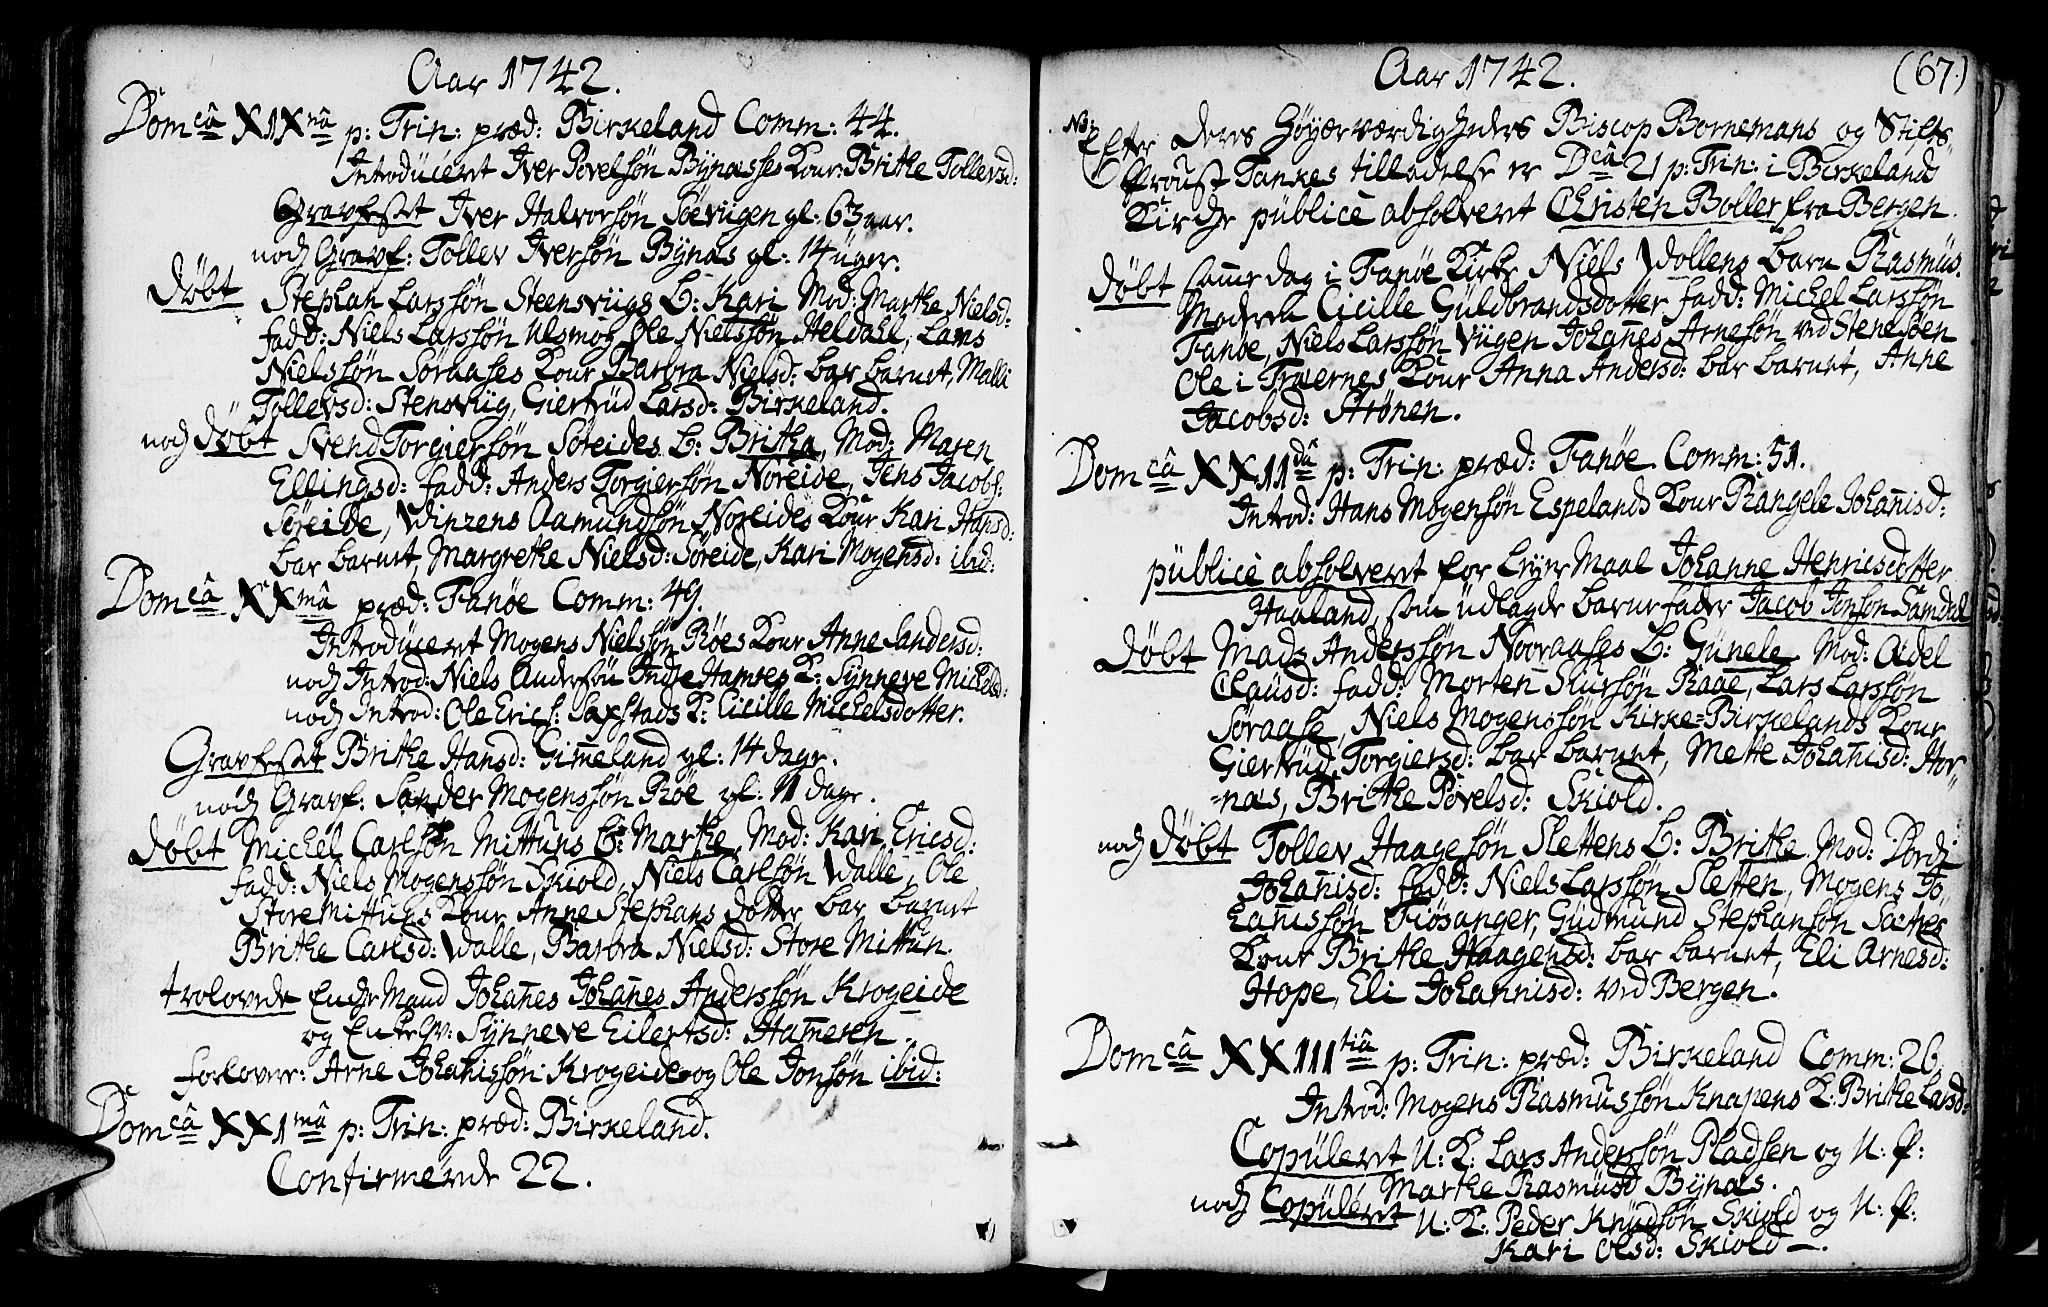 Aar 1742.
Domcâ XIXnâ p: Trin: præd: Birkeland Comm: 44.
Introduceret Iver Povelsøn Bynæsses Kone: Brithe Tollevsd:
Gravfestet Iver Halvorsøn Søevigen gl: 63 aar.
noch Gravf: Tollev Iversøn Bynæs gl: 14 uger.
døbt Stephan Larssøn Steensviigs b: Kari Mod: Marthe Nielsd:
fadd: Niels Larssøn Ulsmog, Ole Nielssøn Heldahl, Lars
Nielssøn Søraases Kone Barbra Nielsd: bar barnet, Malli
Tollevsd: Stensviig, Giertrüd Larsd: Birkeland.
noch døbt Svend Torgiersøn Søreides b: Britha, Mod: Maren
Ellingsd: fadd: Anders Torgiersøn Noreide, Jens Jacobs:
Søreide, Vinzens Aamundsøn Noreides Kone Kari Hansd:
bar barnet, Margrethe Nielsd: Søreide, Kari Mogensd: ibid:
Domcâ XXmâ præd: Fanøe Comm: 49.
Introduceret Mogens Nielssøn Røes Kone Anne Sandersd:
noch Introd: Niels Andersøn Indre Hamres K: Synneve Mickelsd:
noch Introd: Ole Erics: Saxstads K: Cicille Michelsdotter.
Gravfestet Brithe Hansd: Gim̅eland gl: 14 dage.
noch Gravf: Sander Mogenssøn Røe gl: 11 dage.
døbt Michel Carlsøn Mittuns b: Marthe, Mod: Kari Ericsd:
fadd: Niels Mogenssøn Skiold, Niels Carlsøn Valle, Ole
Store Mittuns Kone Anne Stephans dotter bar barnet
Brithe Carlsd: Valle, Barbra Nielsd: Store Mittun.
trolovede Enche Mand Johan̅es Johan̅es Anderssøn Krogeide
og Enke Qv: Synneve Eilertsd: Ham̅eren.
forlovere: Arne Johan̅issøn Krogeide og Ole Jonsøn ibid:
Domcâ XXImâ p: Trin: præd: Birkeland.
Confirmerede 22.
Aar 1742.
(67.)
NB: Efter deres Høyærværdigheders Biscop Bornemans og Stifts-
Proust Tankes tilladelse er Dcâ 21 p: Trin: i Birkelands
Kirche publicè absolveret Christen Boller fra Bergen.
døbt sam̅e dag i Fanøe Kirke Niels Vollens barn Rasmus.
Moderen Cicille Guldbrandsdotter fadd: Michel Larssøn
Fanøe, Niels Larssøn Viigen Johan̅es Arnesøn ved Stenesøen
Ole i Træernes Kone Anna Andersd: bar barnet, Anne
Jacobsd: Strønen.
Domcâ XXIIdâ p: Trin: præd: Fanøe Comm: 51.
Introd: Hans Mogensøn Espelands Kone Rangele Johan̅isd:
publicè absolveret for Leyermaal Johanne Henricsdotter
Haaland, som udlagde barnefader Jacob Jonsøn Samdal
døbt Mads Anderssøn Nooraases b: Gunele Mod: Adel
Clausd: fadd: Morten Siursøn Raae, Lars Larssøn
Søraase, Niels Mogenssøn Kirke=Birkelands Kone
Giertrüd Torgiersd: bar barnet, Mette Johan̅isd: Hor-
-næs, Brithe Povelsd: Skiold.
noch døbt Tollev Haagesøn Slettens b: Brithe Mod: Dordi
Johan̅isd: fadd: Niels Larssøn Sletten, Mogens Jo-
hanissøn Fiøsanger, Gudmund Stephansøn Sætres
Kone Brithe Haagensd: bar barnet, Eli Arnesd:
Hope, Eli Johannisd: ved Bergen.
Domcâ XXIIItiâ p: Trin: præd: Birkeland Comm: 26.
Introd: Mogens Rasmussøn Knapens K: Brithe Larsd:
Copuleret U: K: Lars Anderssøn Pladsen og U: P:
Marthe Rasmusd Bynæs.
noch Copuleret U: K: Peder Knudsøn Skiold og U: P:
Kari Olsd: Skiold —.